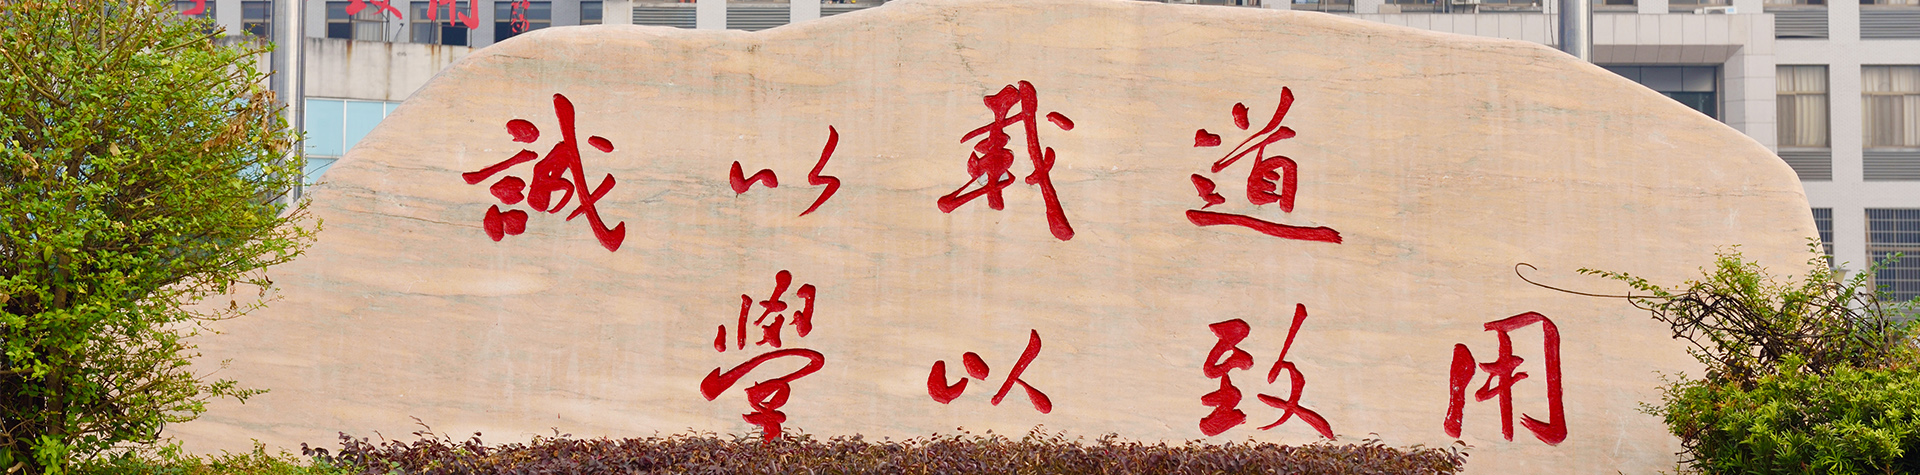 致用
誠以載道
學以致用